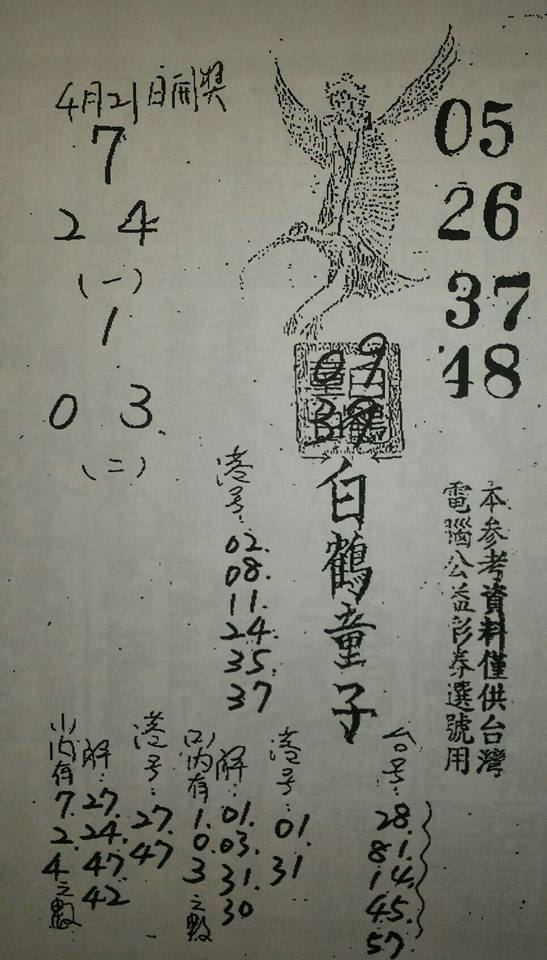 4月21日開獎
7
2 4
(一)
1
0 3
(二)
05
26
37
48
09
39
白鶴童子
本参考資料僅供台灣
電腦公益彩券選號用
港号:
02.
08.
11.
24.
35.
37
台号:
28.
81.
14.
45.
57.
港号:
01.
31
解:
01.
03.
31.
30
内有
1.
0.
3
之數
港号:
27.
47
解:
27.
24.
47.
42
内有
7.
2.
4
之數